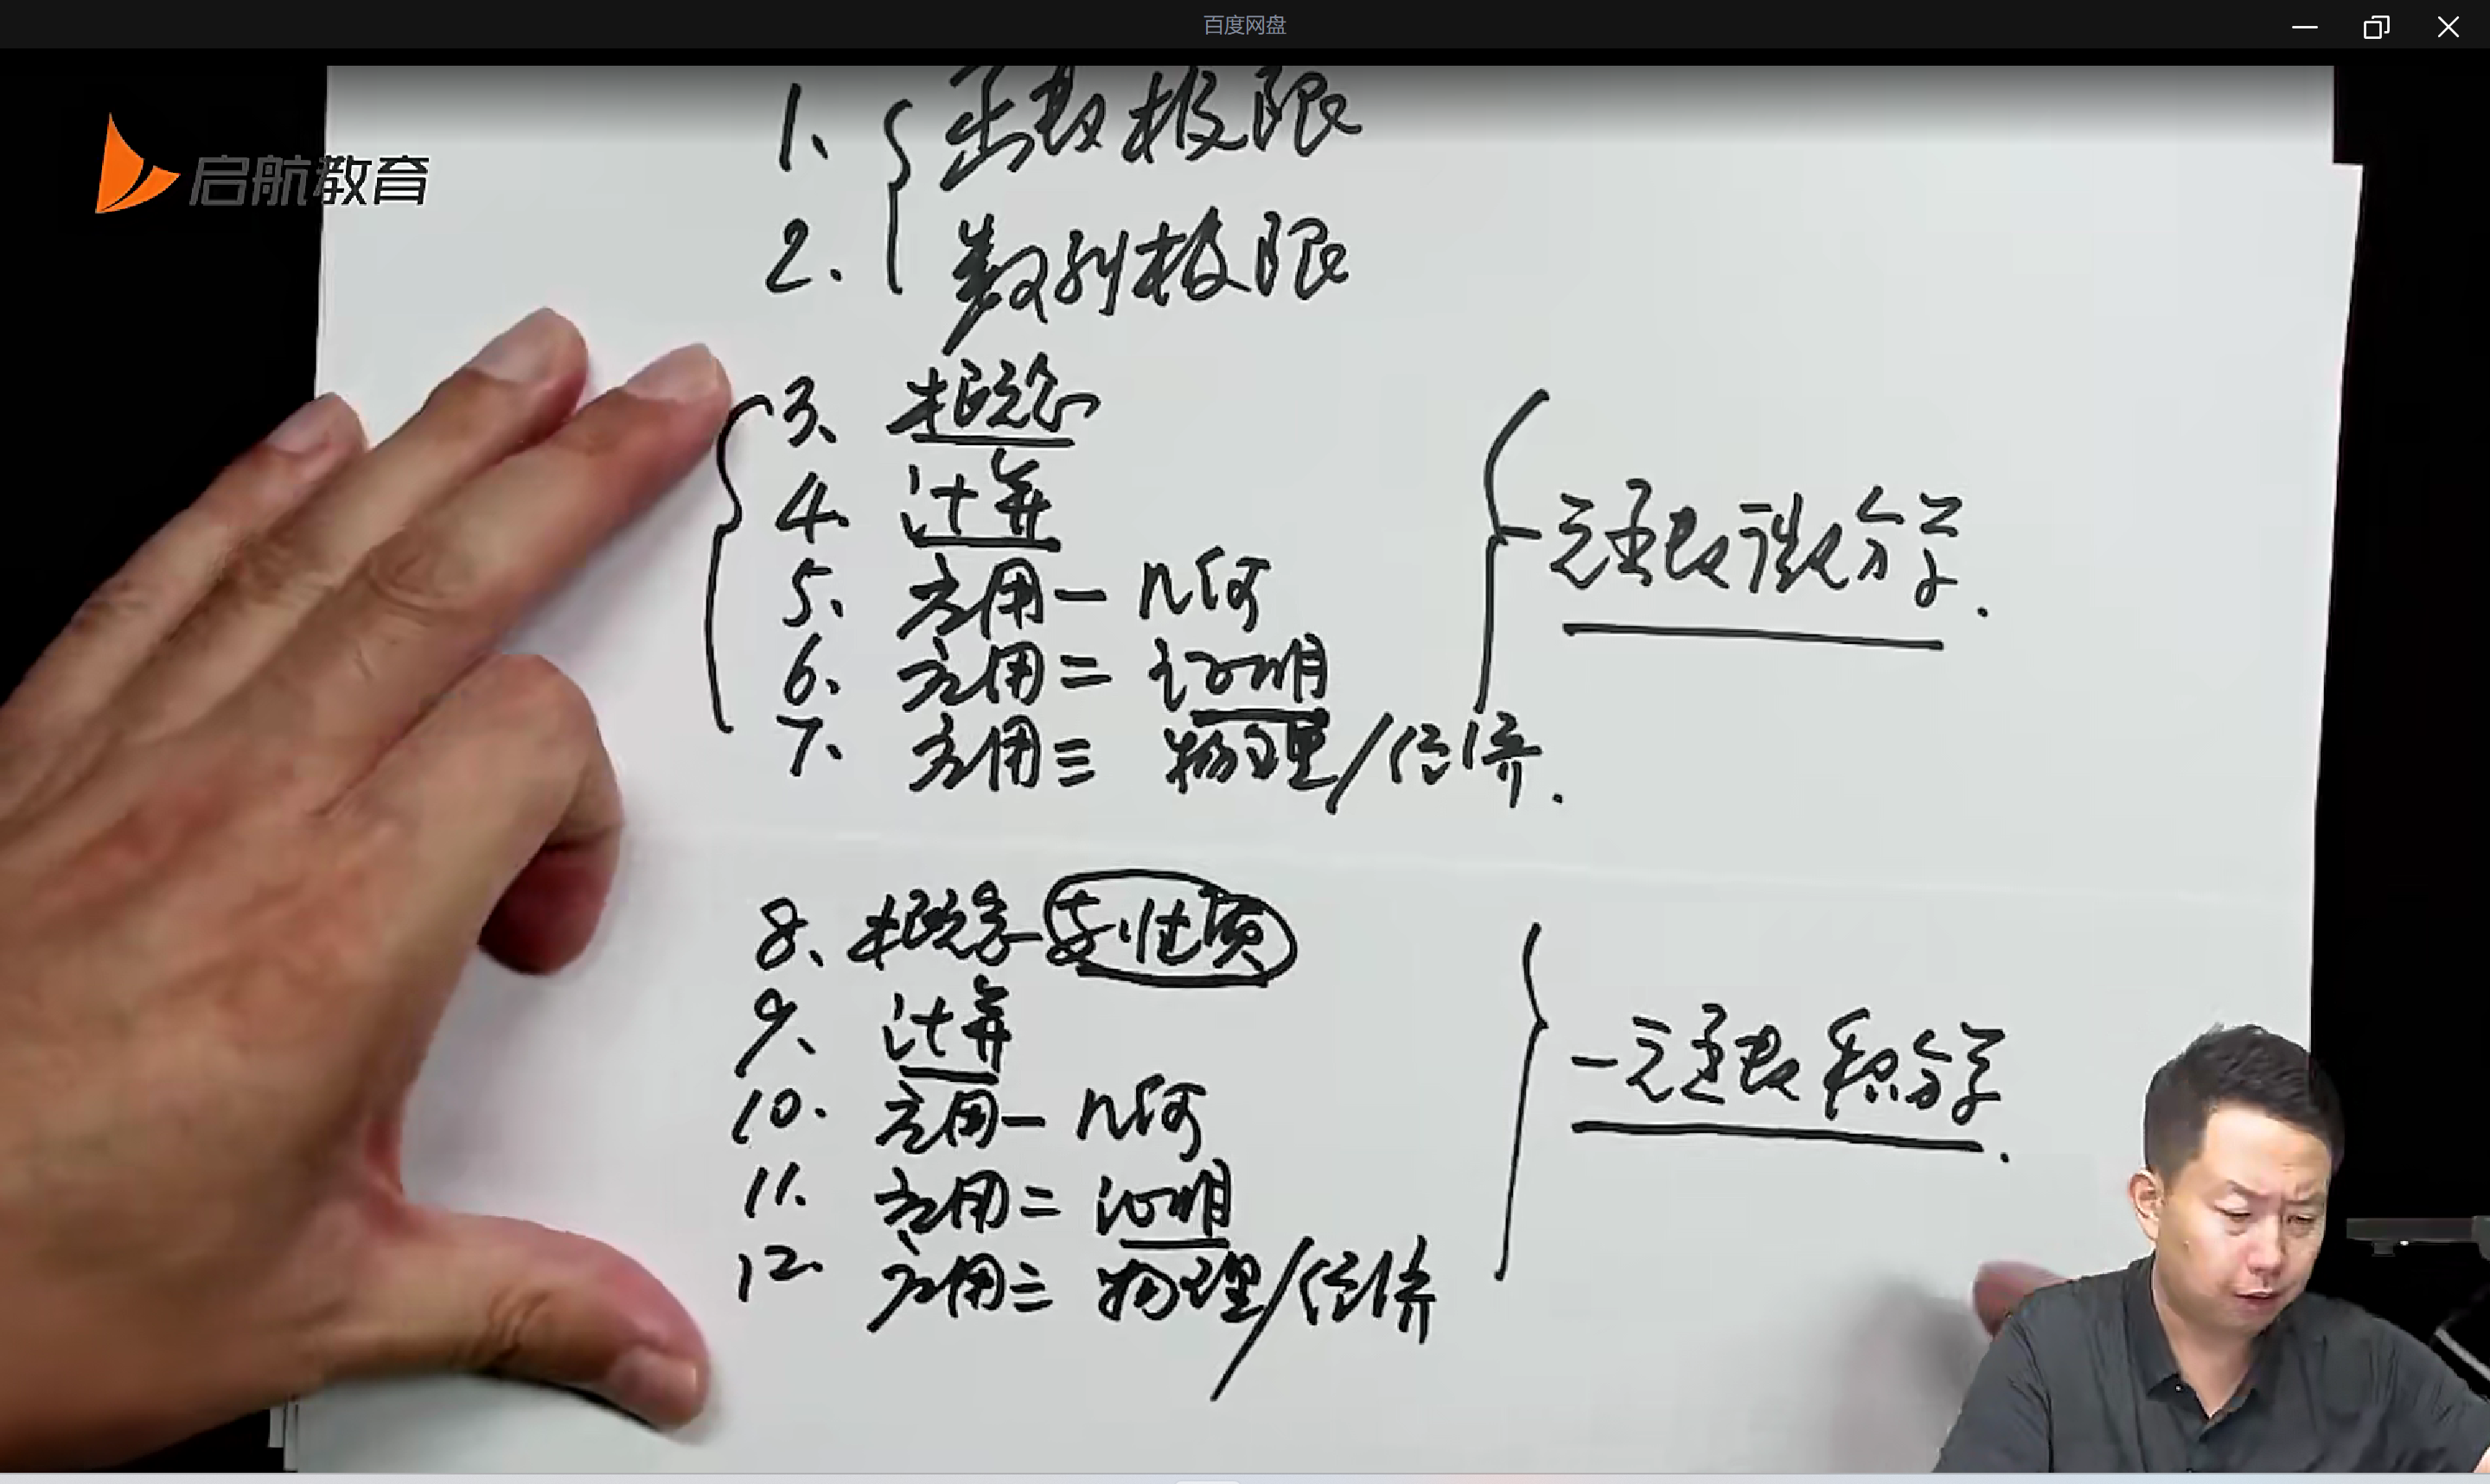 百度网盘
启航教育
1、函数极限
2.数列极限
3、概念
4.计算
5、应用一 几何
6、应用二 证明
7、应用三 物理/经济.
一元函数微分学.
8、概念与性质
9、计算
10.应用一 几何
11.应用二 证明
12.应用三 物理/经济
一元函数积分学.